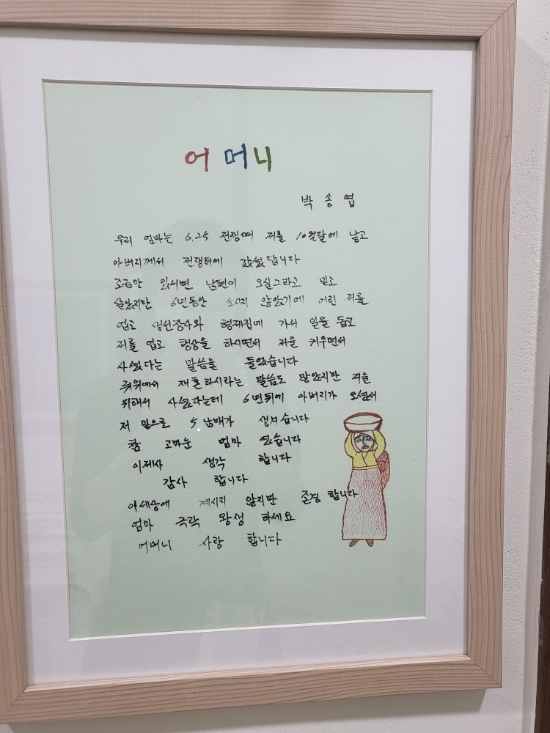 어머니
박송엽
우리 엄마는 6.25 전쟁때 저를 10월달에 낳고
아버리께서 전쟁터에 갔섰답니다
조금만 있서면 남편이 오실그라고 믿고
살았지만 6년동안 오시지 않았기에 어린 저를
업고 생선장사와 형제집에 가서 일을 돕고
저를 업고 행상을 하시면서 저을 키우면서
사셨다는 말씀을 들었습니다
주위에서 재혼하시라는 말씀도 많았지만 저을
위해서 사셨다는데 6년뒤에 아버리가 오셨서
저 밑으로 5남매가 생겼습니다
참 고마운 엄마 였습니다
이제사 생각 합니다
감사 합니다
이세상에 계시지 않지만 존경 합니다
엄마 극락 왕생 하세요
어머니 사랑 합니다